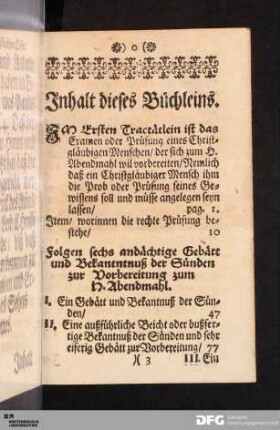 )o( 0 )o(
Inhalt dieses Büchleins.
IM Ersten Tractätlein ist das
Examen oder Prüfung eines Christ-
gläubigen Menschen/ der sich zum H.
Abendmahl wil vorbereiten/ Nemlich
daß ein Christgläubiger Mensch ihm
die Prob oder Prüfung seines Ge-
wissens soll und müsse angelegen seyn
lassen/ pag. 1.
Item/ worinnen die rechte Prüfung be-
stehe/ 10
Folgen sechs andächtige Gebätt
und Bekanntnuß der Sünden
zur Vorbereitung zum
H. Abendmahl.
I. Ein Gebätt und Bekantnuß der Sün-
den/ 47
II. Eine außführliche Beicht oder bußfer-
tige Bekantnuß der Sünden und sehr
eiferig Gebätt zur Vorbereitung/ 77
)( 3 III. Ein
Inhalt
DFG